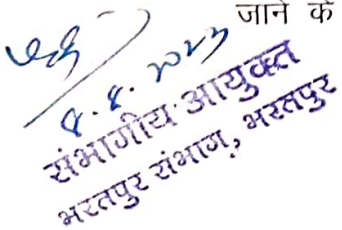 जाने के
8.8.2023
संभागीय आयुक्त
भरतपुर संभाग, भरतपुर